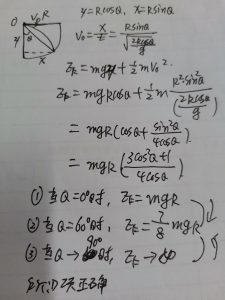 O V₀ R
y θ
x
y=Rcosθ, x=Rsinθ
V₀=x/t=Rsinθ/√(2Rcosθ/g)
E_k=mgy+1/2mV₀².
E_k=mgRcosθ+1/2m R²sin²θ/(2Rcosθ/g)
=mgR(cosθ+sin²θ/4cosθ)
=mgR(3cos²θ+1/4cosθ)
(1) 当θ=0°时, E_k=mgR
(2) 当θ=60°时, E_k=7/8mgR
(3) 当θ→90°时, E_k→∞
所以D项正确